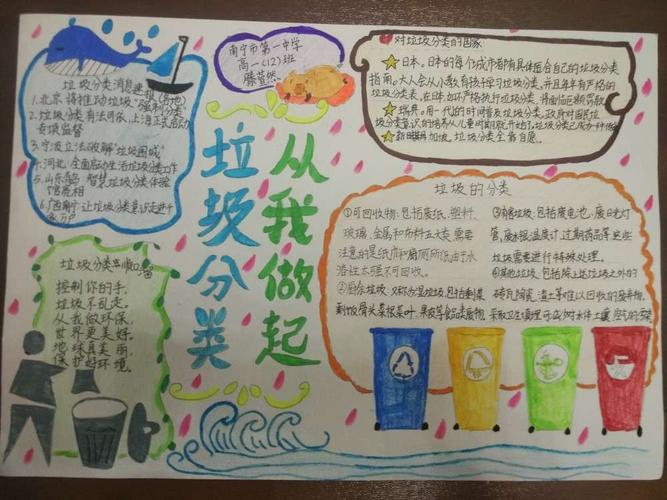 垃圾分类消息速递(各地)
1.北京 将推动垃圾"强制分类"
2.垃圾分类有法可依,上海正式启动
专项监督
3.宁波立法破解"垃圾围城"
4.河北:全面启动生活垃圾分类工作
5.山东青岛 智慧垃圾分类体验
馆亮相
6.广西南宁:让垃圾分类意识走进千
家万户
南宁市第一中学
高一(12)班
垃圾分类
从我做起
对垃圾分类的国家
日本。日本的每个城市都有具体适合自己的垃圾分类
指南。大人会从小教育孩子学习垃圾分类,并且每年有严格的
垃圾分类表。在日本,如不严格执行垃圾分类,将面临巨额罚款
瑞典。用一代的时间普及垃圾分类。政府对国民垃
圾分类意识的培养从儿童时期就开始了,垃圾分类已成为一种
加坡。垃圾分类全靠自愿。
垃圾的分类
①可回收物:包括废纸、塑料、
玻璃、金属和布料五大类,需要
注意的是纸巾和厕所纸由于水
溶性太强不可回收。
②厨余垃圾 包括剩菜
剩饭骨头菜根菜叶、果皮等食品类废物
③有害垃圾,包括废电池、废日光灯
管、废水银温度计、过期药品等,这些
垃圾需要进行特殊处理。
④其他垃圾,包括除上述垃圾之外的
砖瓦陶瓷、渣土等难以回收的废弃物,
采取卫生填埋可减少对水体土壤、空气的污染
垃圾分类顺口溜
控制你的手,
垃圾不乱走。
从我做环保,
世界更美好。
地球真美丽,
保护好环境。